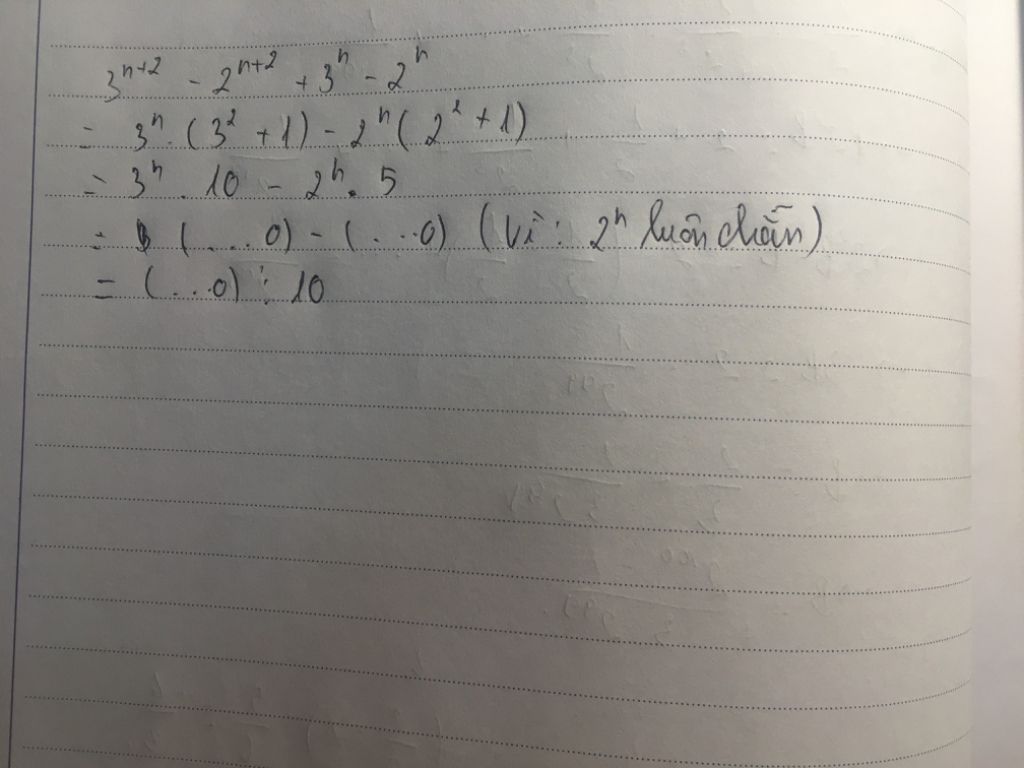 3ⁿ⁺² - 2ⁿ⁺² + 3ⁿ - 2ⁿ
= 3ⁿ.(3² + 1) - 2ⁿ(2² + 1)
= 3ⁿ.10 - 2ⁿ.5
= (...0) - (...0) (Vì: 2ⁿ luôn chẵn)
= (...0) ⋮ 10